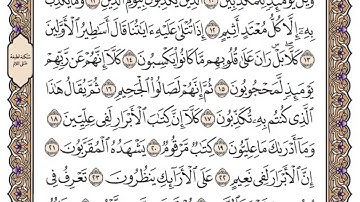 وَيْلٌ يَوْمَئِذٍ لِّلْمُكَذِّبِينَ ١٠ ٱلَّذِينَ يُكَذِّبُونَ بِيَوْمِ ٱلدِّينِ ١١ وَمَا يُكَذِّبُ
بِهِۦٓ إِلَّا كُلُّ مُعْتَدٍ أَثِيمٍ ١٢ إِذَا تُتْلَىٰ عَلَيْهِ ءَايَٰتُنَا قَالَ أَسَٰطِيرُ ٱلْأَوَّلِينَ
١٣ كَلَّا بَلْ رَانَ عَلَىٰ قُلُوبِهِم مَّا كَانُوا۟ يَكْسِبُونَ ١٤ كَلَّآ إِنَّهُمْ عَن رَّبِّهِمْ
يَوْمَئِذٍ لَّمَحْجُوبُونَ ١٥ ثُمَّ إِنَّهُمْ لَصَالُوا۟ ٱلْجَحِيمِ ١٦ ثُمَّ يُقَالُ هَٰذَا
ٱلَّذِى كُنتُم بِهِۦ تُكَذِّبُونَ ١٧ كَلَّآ إِنَّ كِتَٰبَ ٱلْأَبْرَارِ لَفِى عِلِّيِّينَ ١٨
وَمَآ أَدْرَىٰكَ مَا عِلِّيُّونَ ١٩ كِتَٰبٌ مَّرْقُومٌ ٢٠ يَشْهَدُهُ ٱلْمُقَرَّبُونَ ٢١
إِنَّ ٱلْأَبْرَارَ لَفِى نَعِيمٍ ٢٢ عَلَى ٱلْأَرَآئِكِ يَنظُرُونَ ٢٣ تَعْرِفُ فِى